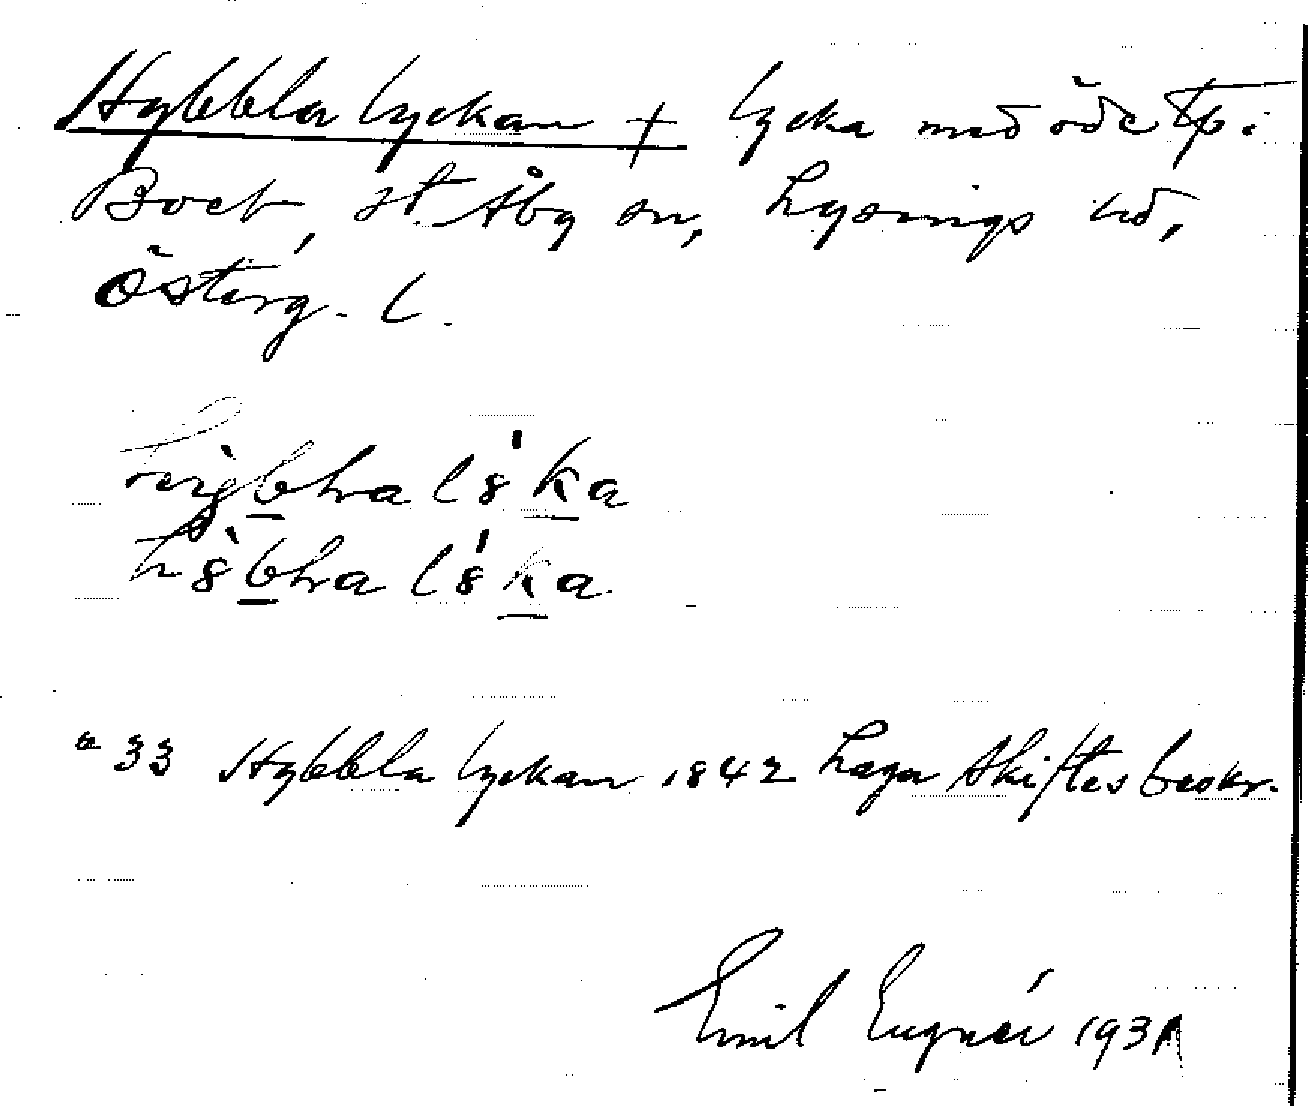 Hybbla lyckan + lycka med öde tp i
Boet, St Åby sn, Lysings hd,
Österg. l.
a 33 Hybbla lyckan 1842 Laga Skiftesbeskr.
Emil Engnér 1931